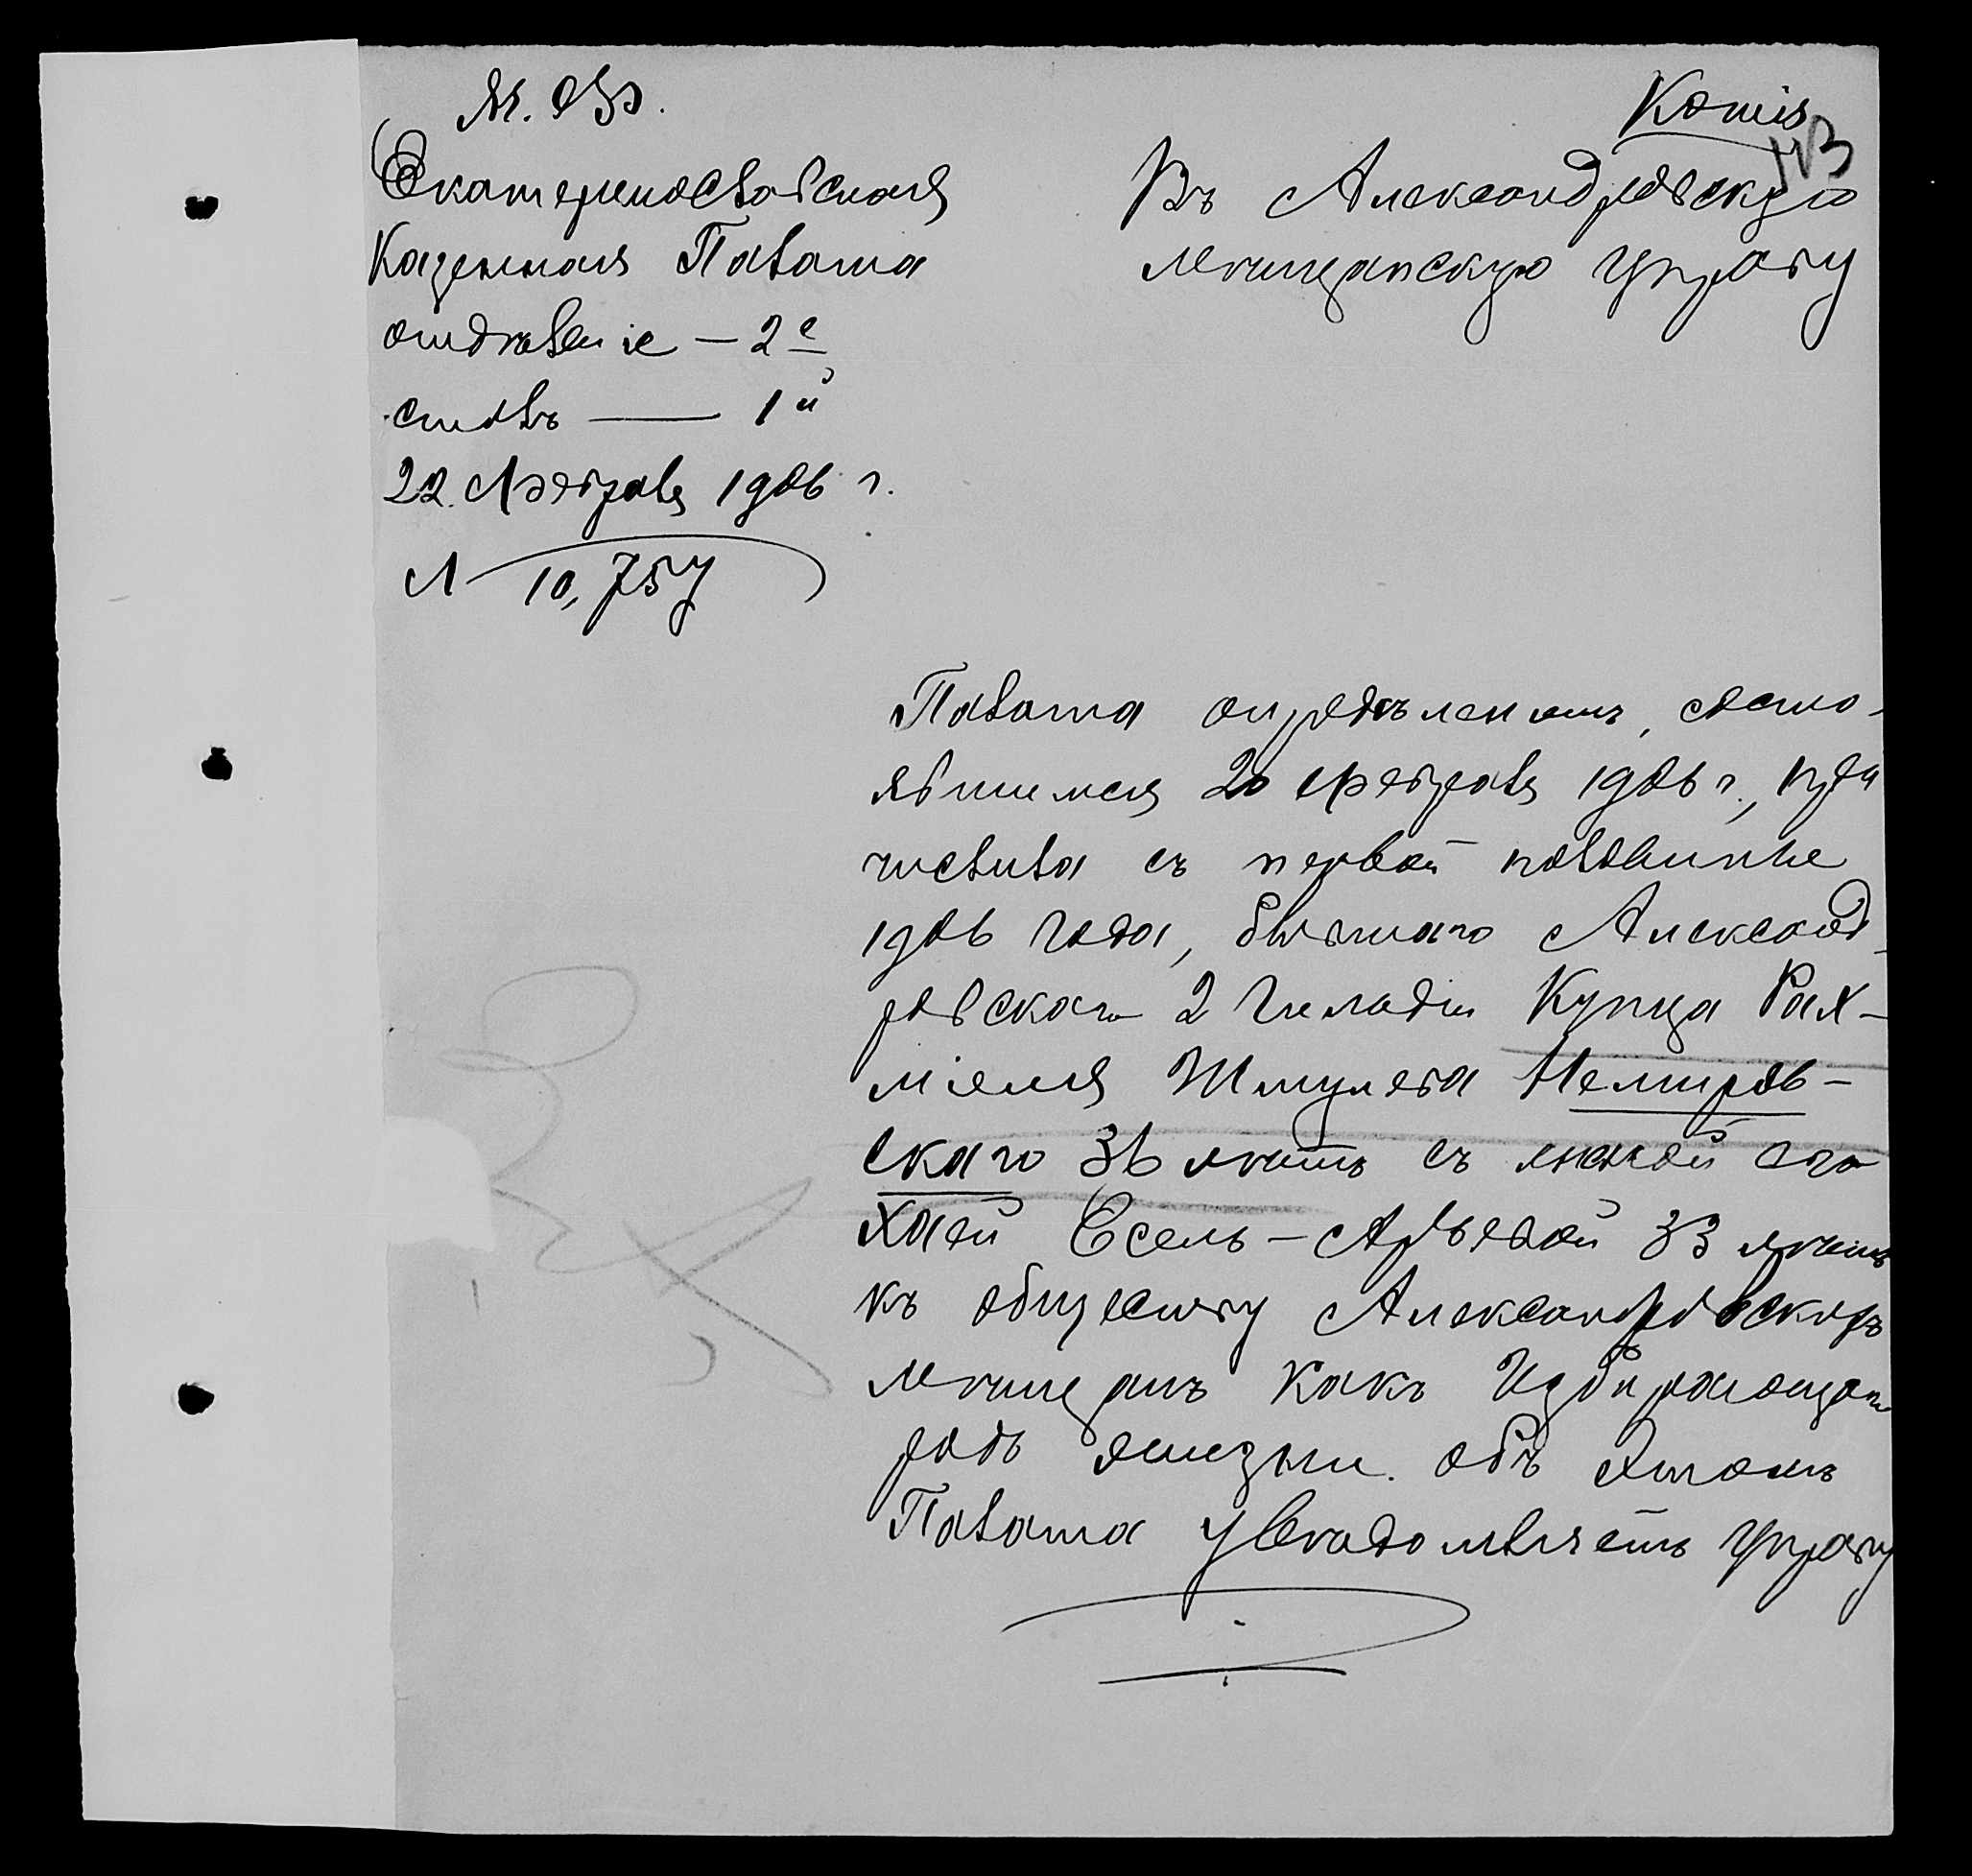 М. Ф.
Копія
113
Екатеринославская
Казенная Палата
отдѣленіе — 2е
столъ — 1й
22 Февраля 1906 г.
№ 10,757
Въ Александровскую
мѣщанскую Управу
Палата опредѣленіемъ, состо-
явшимся 20 Февраля 1906 г., при
числила съ первой половины
1906 года, бывшаго Александ-
ровскаго 2 гильдіи Купца Рах-
міеля Шмулева Немиров-
скаго 36 лѣтъ съ женой его
Хаей Есель-Арьевой 33 лѣтъ
къ обществу Александровскихъ
мѣщанъ какъ Избирающаго
родъ жизни. Объ этомъ
Палата увѣдомляетъ Управу